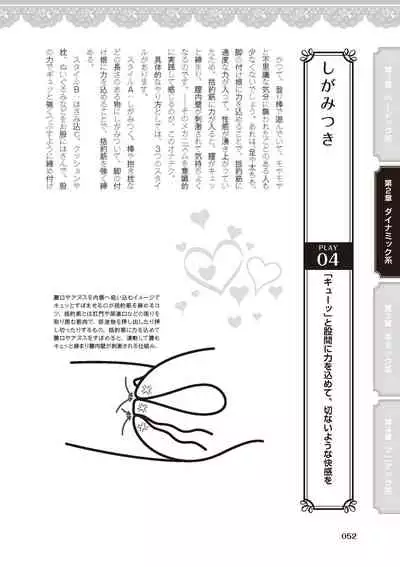 しがみつき
PLAY
04
「キューッ」と股間に力を込めて、切ないような快感を
かつて、登り棒で遊んでいて、モヤモヤ
と不思議な気分に襲われたことのある人も
少なくないでしょう。あれは、足や太もも、
脚の付け根に力を込めることで、括約筋に
適度な力が入って、性感が湧き上がってい
たため。括約筋に力が入ると、膣がキュッ
と締まり、膣内壁が刺激されて気持ちよく
なるのです。――そのメカニズムを意識的
に実践して感じるのが、このオナテク。
具体的なやり方としては、3つのスタイ
ルがあります。
スタイルA…しがみつく。棒や抱き枕な
どの長さのある物にしがみついて、脚の付
け根に力を込めることで、括約筋を強く締
める。
スタイルB…はさみ込む。クッションや
枕、ぬいぐるみなどをお股にはさんで、股
の力でギュッと強くつぶすように締め付け
膣口やアヌスを内側へ吸い込むイメージで
キュッとすぼませるのが括約筋を締めるコ
ツ。括約筋とは肛門や尿道口などの周りを
取り囲む筋肉で、排泄物を押し出したり押
し切ったりするもの。括約筋に力を込めて
膣口やアヌスをすぼめると、連動して膣も
キュッと締まり膣内壁が刺激される仕組み。
第2章 ダイナミック系
052